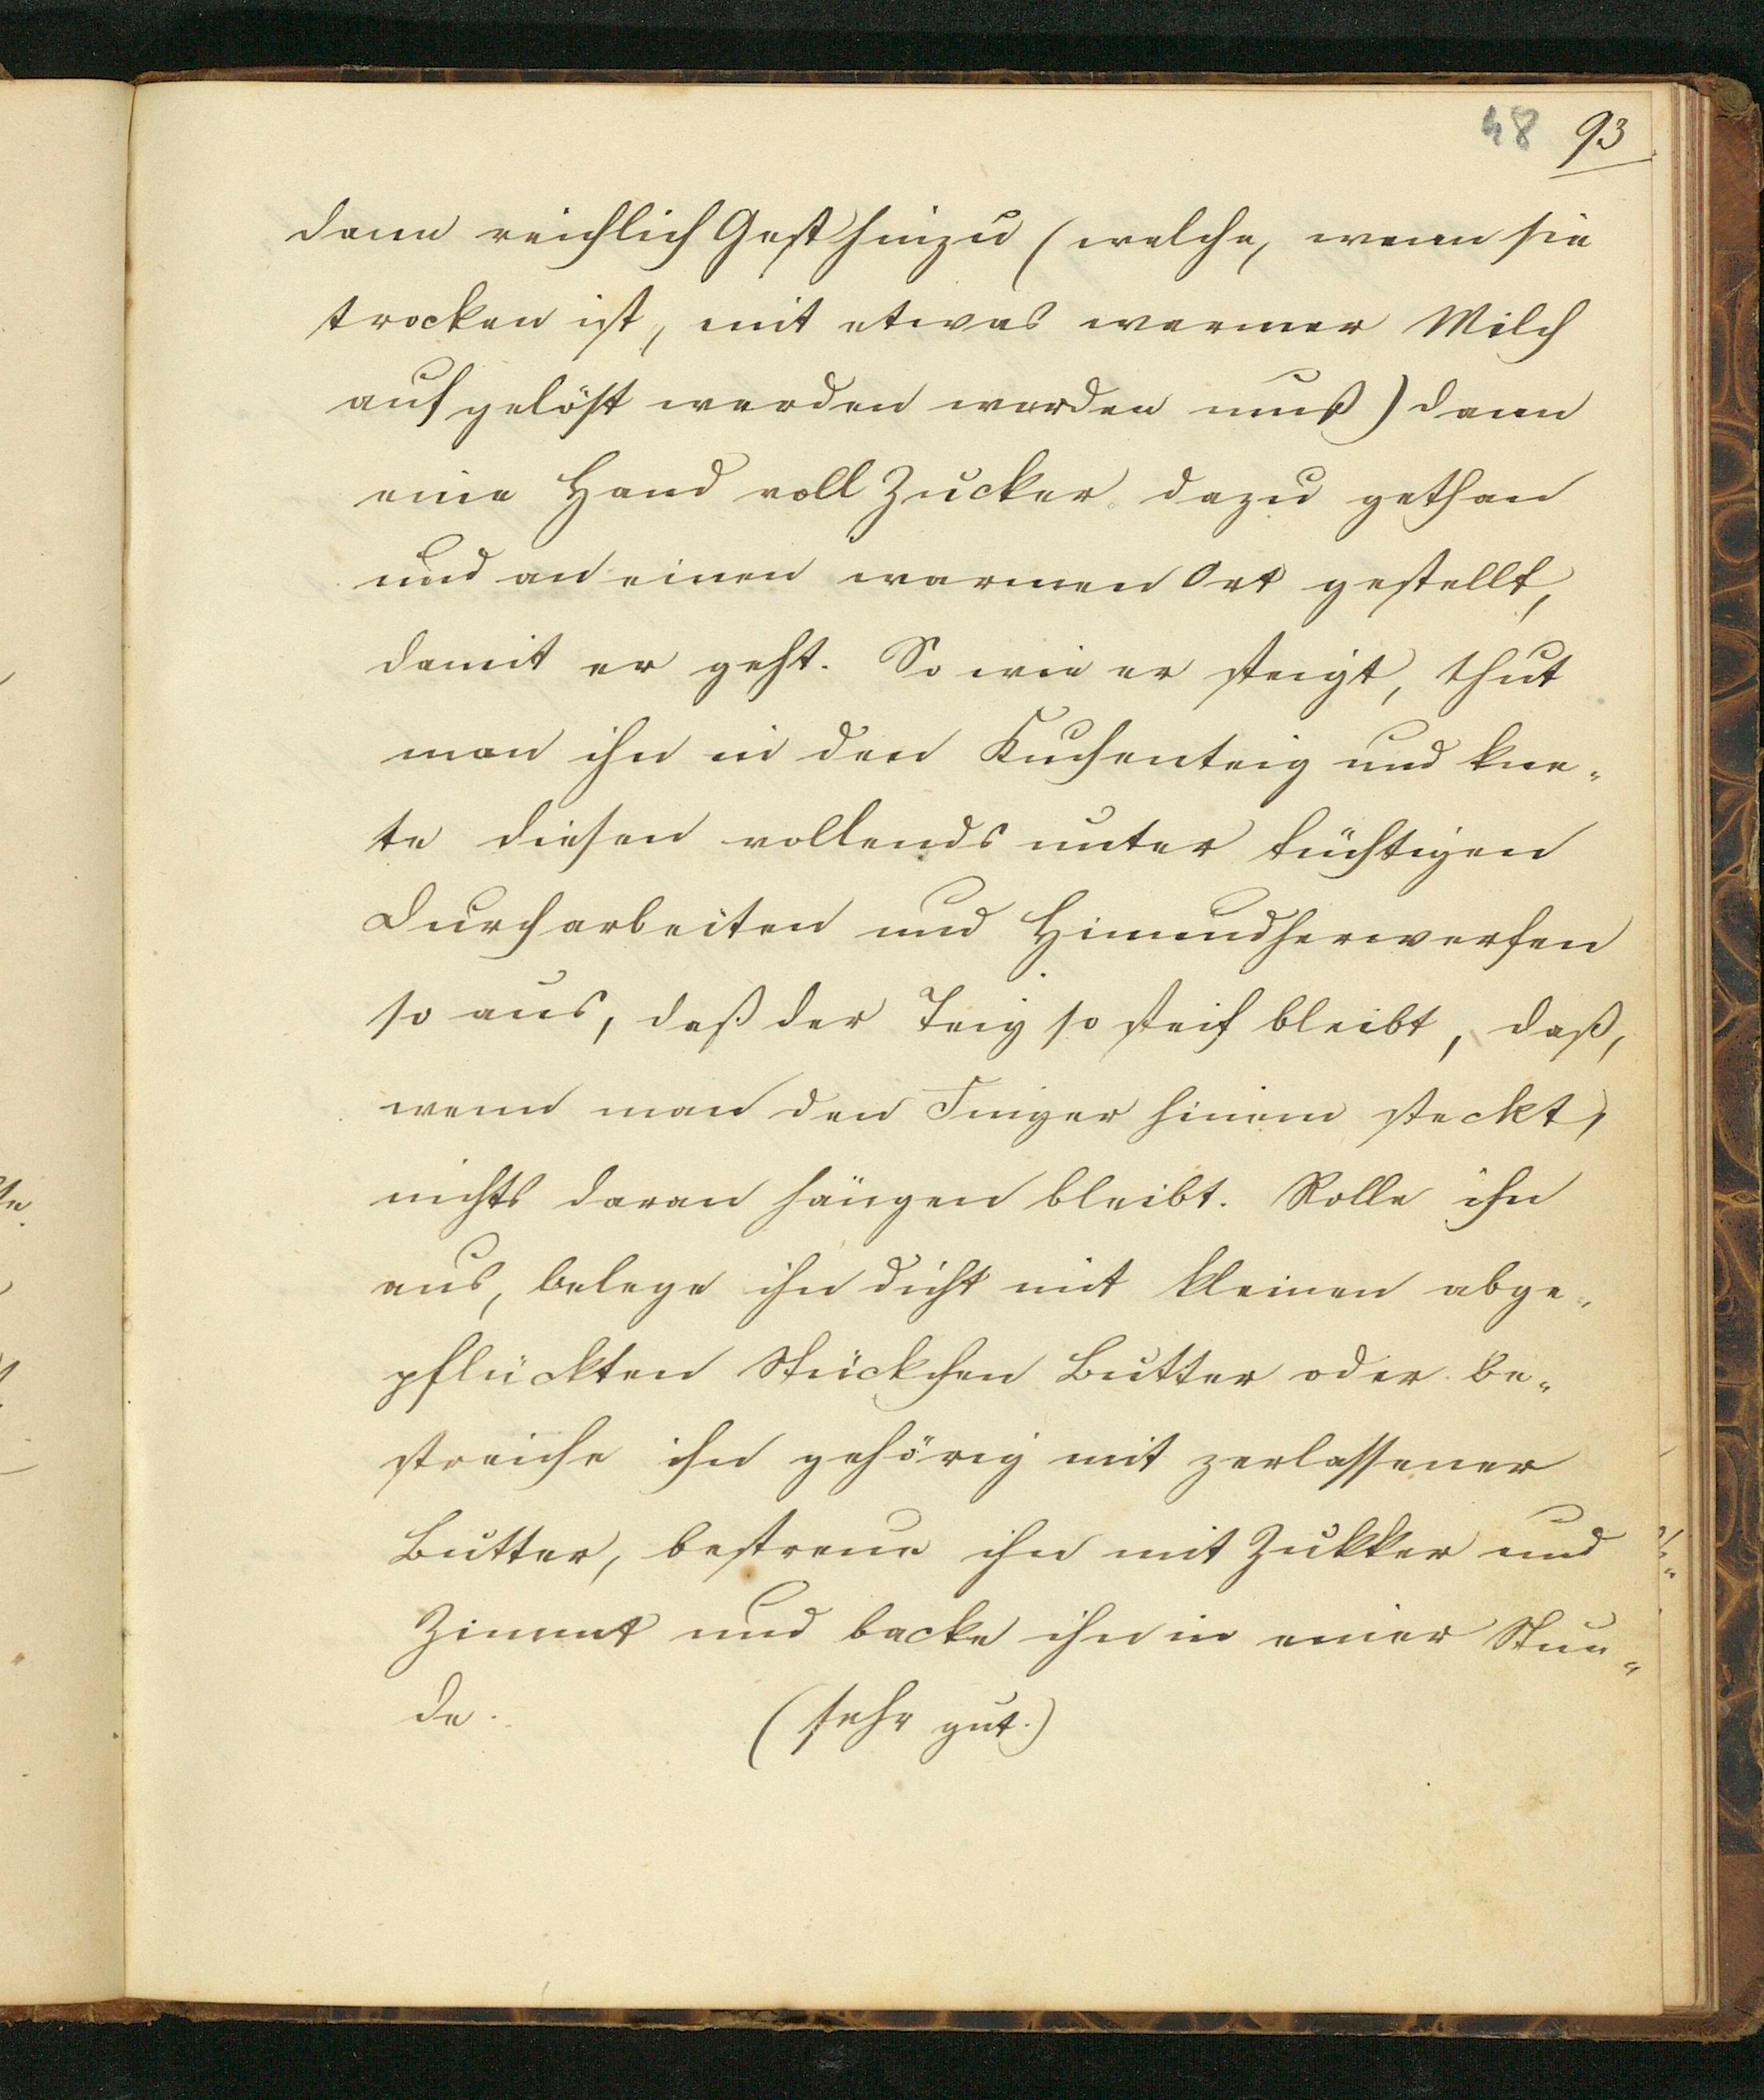 48 93
dann reichlich Gest hinzu (welche, wenn sie
trocken ist, mit etwas warmer Milch
aufgelöst werden werden muß) dann
eine Hand voll Zucker dazu gethan
und an einen warmen Ort gestellt,
damit er geht. So wie er steigt, thut
man ihn in den Kuchenteig und kne-
te diesen vollends unter tüchtigen
Durcharbeiten und Hinundherwerfen
so aus, daß der Teig so steif bleibt, daß,
wenn man den Finger hinein steckt,
nichts daran hängen bleibt. Rolle ihn
aus, belege ihn dicht mit kleinen abge-
pflückten Stückchen Butter oder be-
streiche ihn gehörig mit zerlassener
Butter, bestreue ihn mit Zukker und
Zimmt und backe ihn in einer Stun-
de. (sehr gut.)